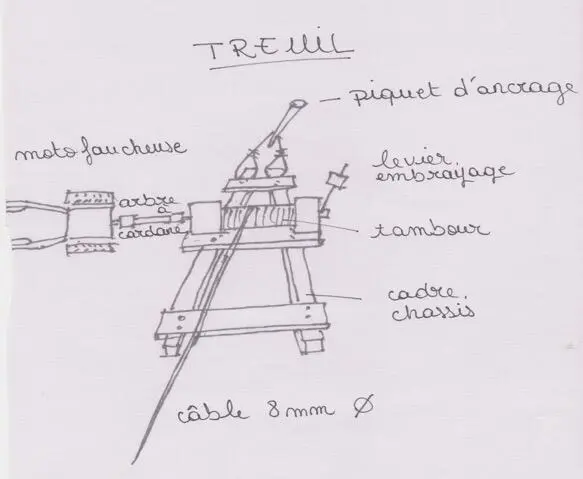 TREUIL
piquet d'ancrage
motofaucheuse
levier,
embrayage
arbre
à
cardane
tambour
cadre,
chassis
câble 8mm Ø